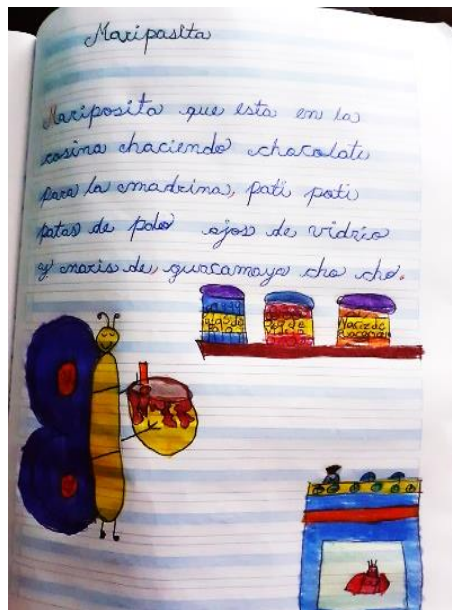 Maripasita
Mariposita que esta en la
cosina chaciendo chocolate
para la madrina, pati pati
patas de palo ojos de vidrio
y naris de guacamaya cho cho.
Patas de
Ojo de
Nariz de